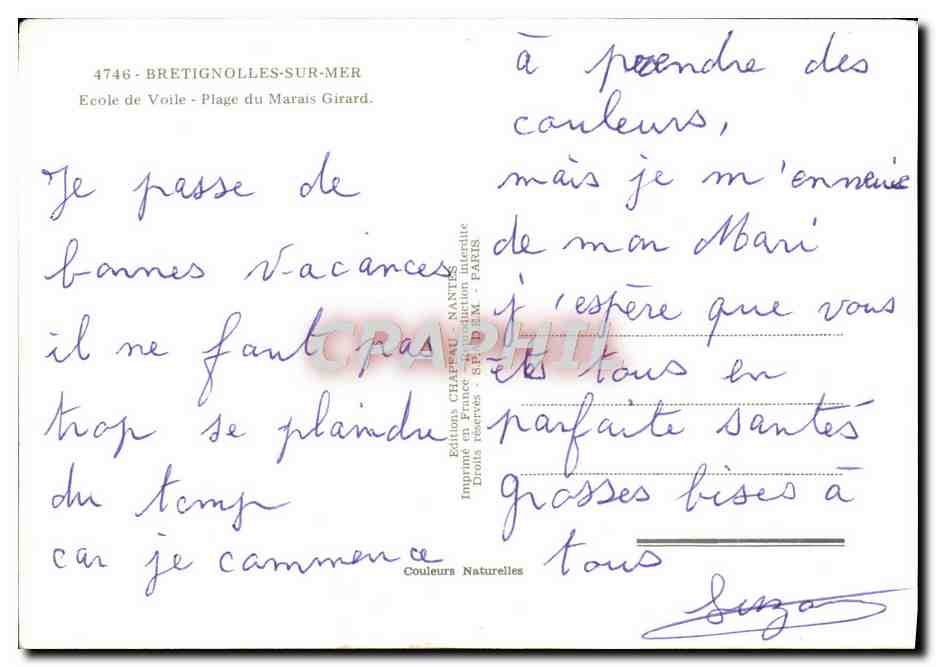 4746 - BRETIGNOLLES-SUR-MER
Ecole de Voile - Plage du Marais Girard.
Je passe de
bonnes vacances
il ne faut pas
trop se plaindre
du temp
car je commence
à prendre des
couleurs,
mais je m'ennuie
de mon Mari
j'espère que vous
êts tous en
parfaite santés
grosses bises à
tous
Suzon
Editions CHAPEAU - NANTES
Imprimé en France - Reproduction interdite
Droits réservés - S.P.A.D.E.M. - PARIS.
Couleurs Naturelles
CPAPHIL